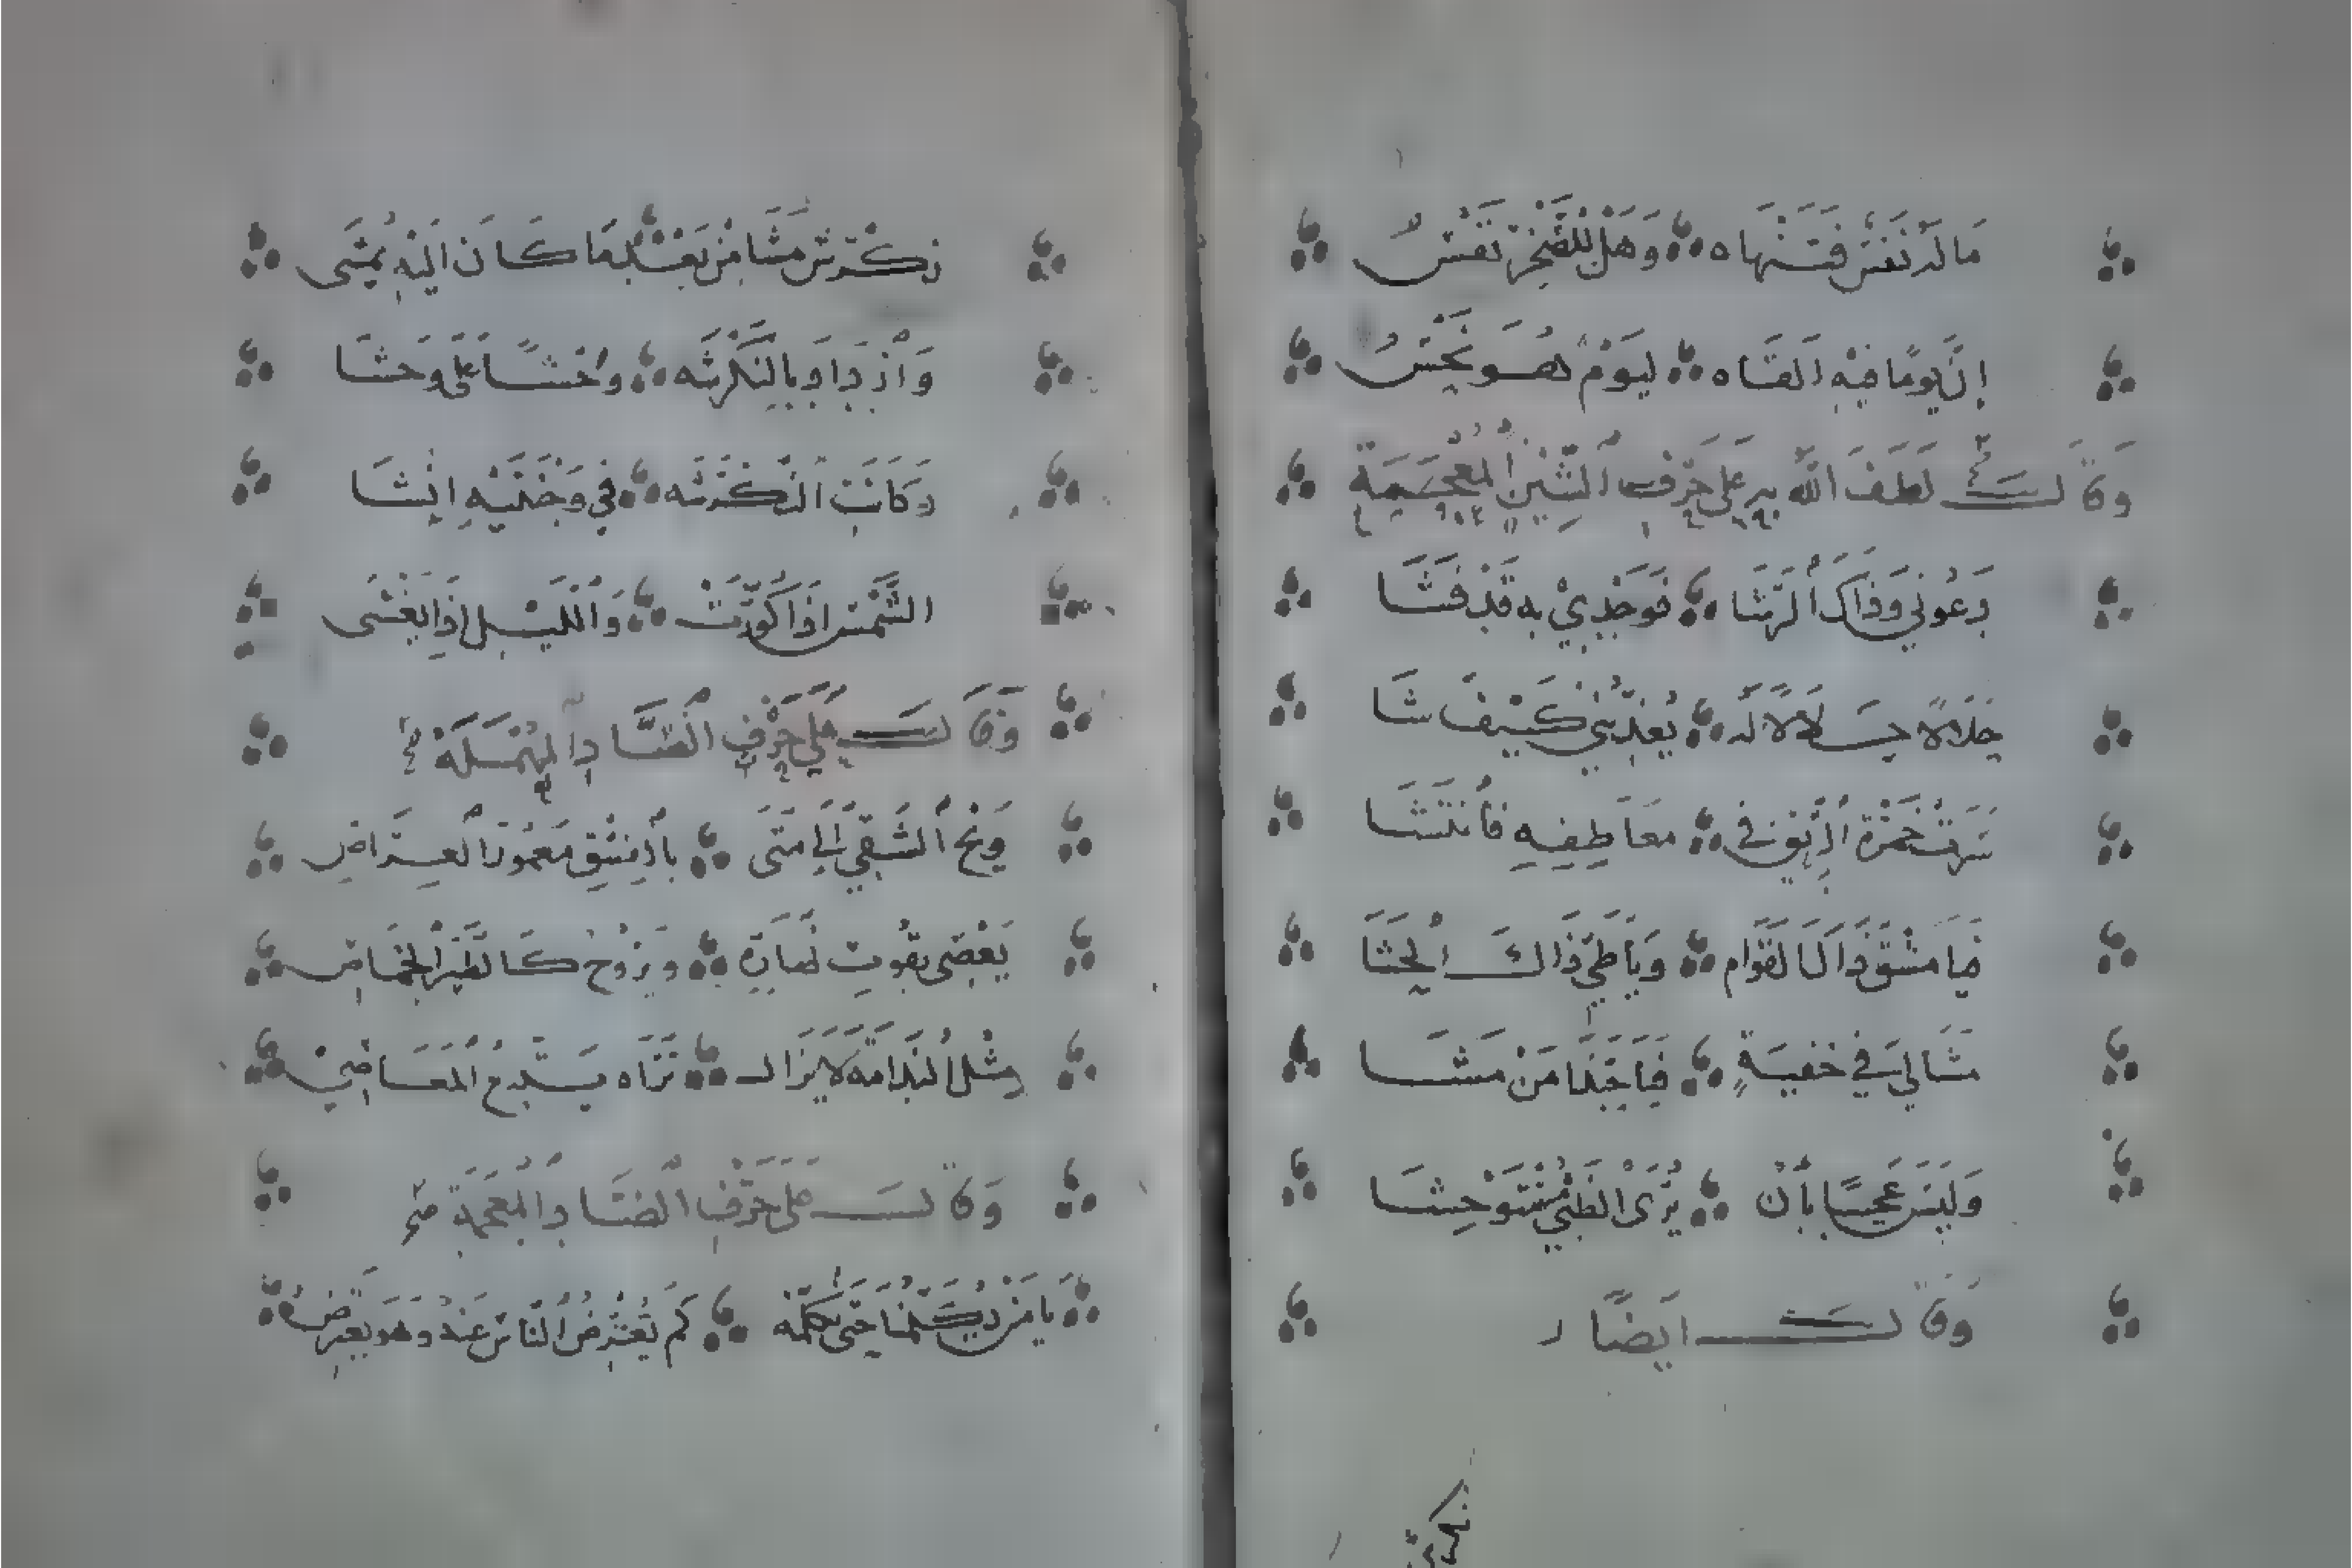 مَا لَهُ نَفْسٌ فَتَنْهَاهُ وَهَلْ لِلصَّخْرِ نَفْسُ
إِنَّ يَوْمًا فِيهِ أَلْقَاهُ لَيَوْمٌ هُوَ نَحْسُ
وَقَالَ لَطَفَ اللهُ بِهِ عَلَى حَرْفِ الشِّينِ الْمُعْجَمَةِ
دَعُونِي وَذَاكَ الرَّشَا فَوَجْدِيْ بِهِ قَدْ فَشَا
حَلَالًا حَلَالًا لَهُ يُعَذِّبُنِي كَيْفَ شَا
سَرَتْ خَمْرَةُ الرِّيقِ فِي مَعَاطِفِهِ فَانْتَشَا
فَيَا مَشْقَ ذَاكَ الْقَوَام وَيَا طَيَّ ذَاكَ الْحَشَا
مَشَا لِيَ فِي خُفْيَةٍ فَيَا حَبَّذَا مَنْ مَشَا
وَلَيْسَ عَجِيبًا بِأَنْ يُرَى الظَّبْيُ مُسْتَوْحِشَا
وَقَالَ أَيْضًا
نكريش
نكريش مشا من بعد ما كان إليه يمشى
وكانت النكرشه في وجنتيه إنشا
الشَّمْسُ إِذَا كُوِّرَتْ وَاللَّيْلُ إِذَا يَغْشَى
وَقَالَ عَلَى حَرْفِ الصَّادِ الْمُهْمَلَةْ
وَيْحَ الشَّقِيِّ إِلَى مَتَى بَادِمَشْقِ مَعْمُورَ الْعِرَاصِ
يَغْضَى بِقُوتِ نَهَارِهِ وَيَرُوحُ كَالطَّيْرِ الْخِمَاصِ
مِثْلُ النَّدَامَهْ لَا يَزَالُ تَرَاهُ يَسْتَدْعِ الْمَعَاصِيْ
وَقَالَ عَلَى حَرْفِ الضَّادِ الْمُعْجَمَةِ
يَا مَنْ نُكَلِّمُنَا حَتَّى نُكَلِّمُهُ كَمْ يُعْرِضُ النَّاسُ عَنْهُ وَهُوَ يَعْتَرِضُ